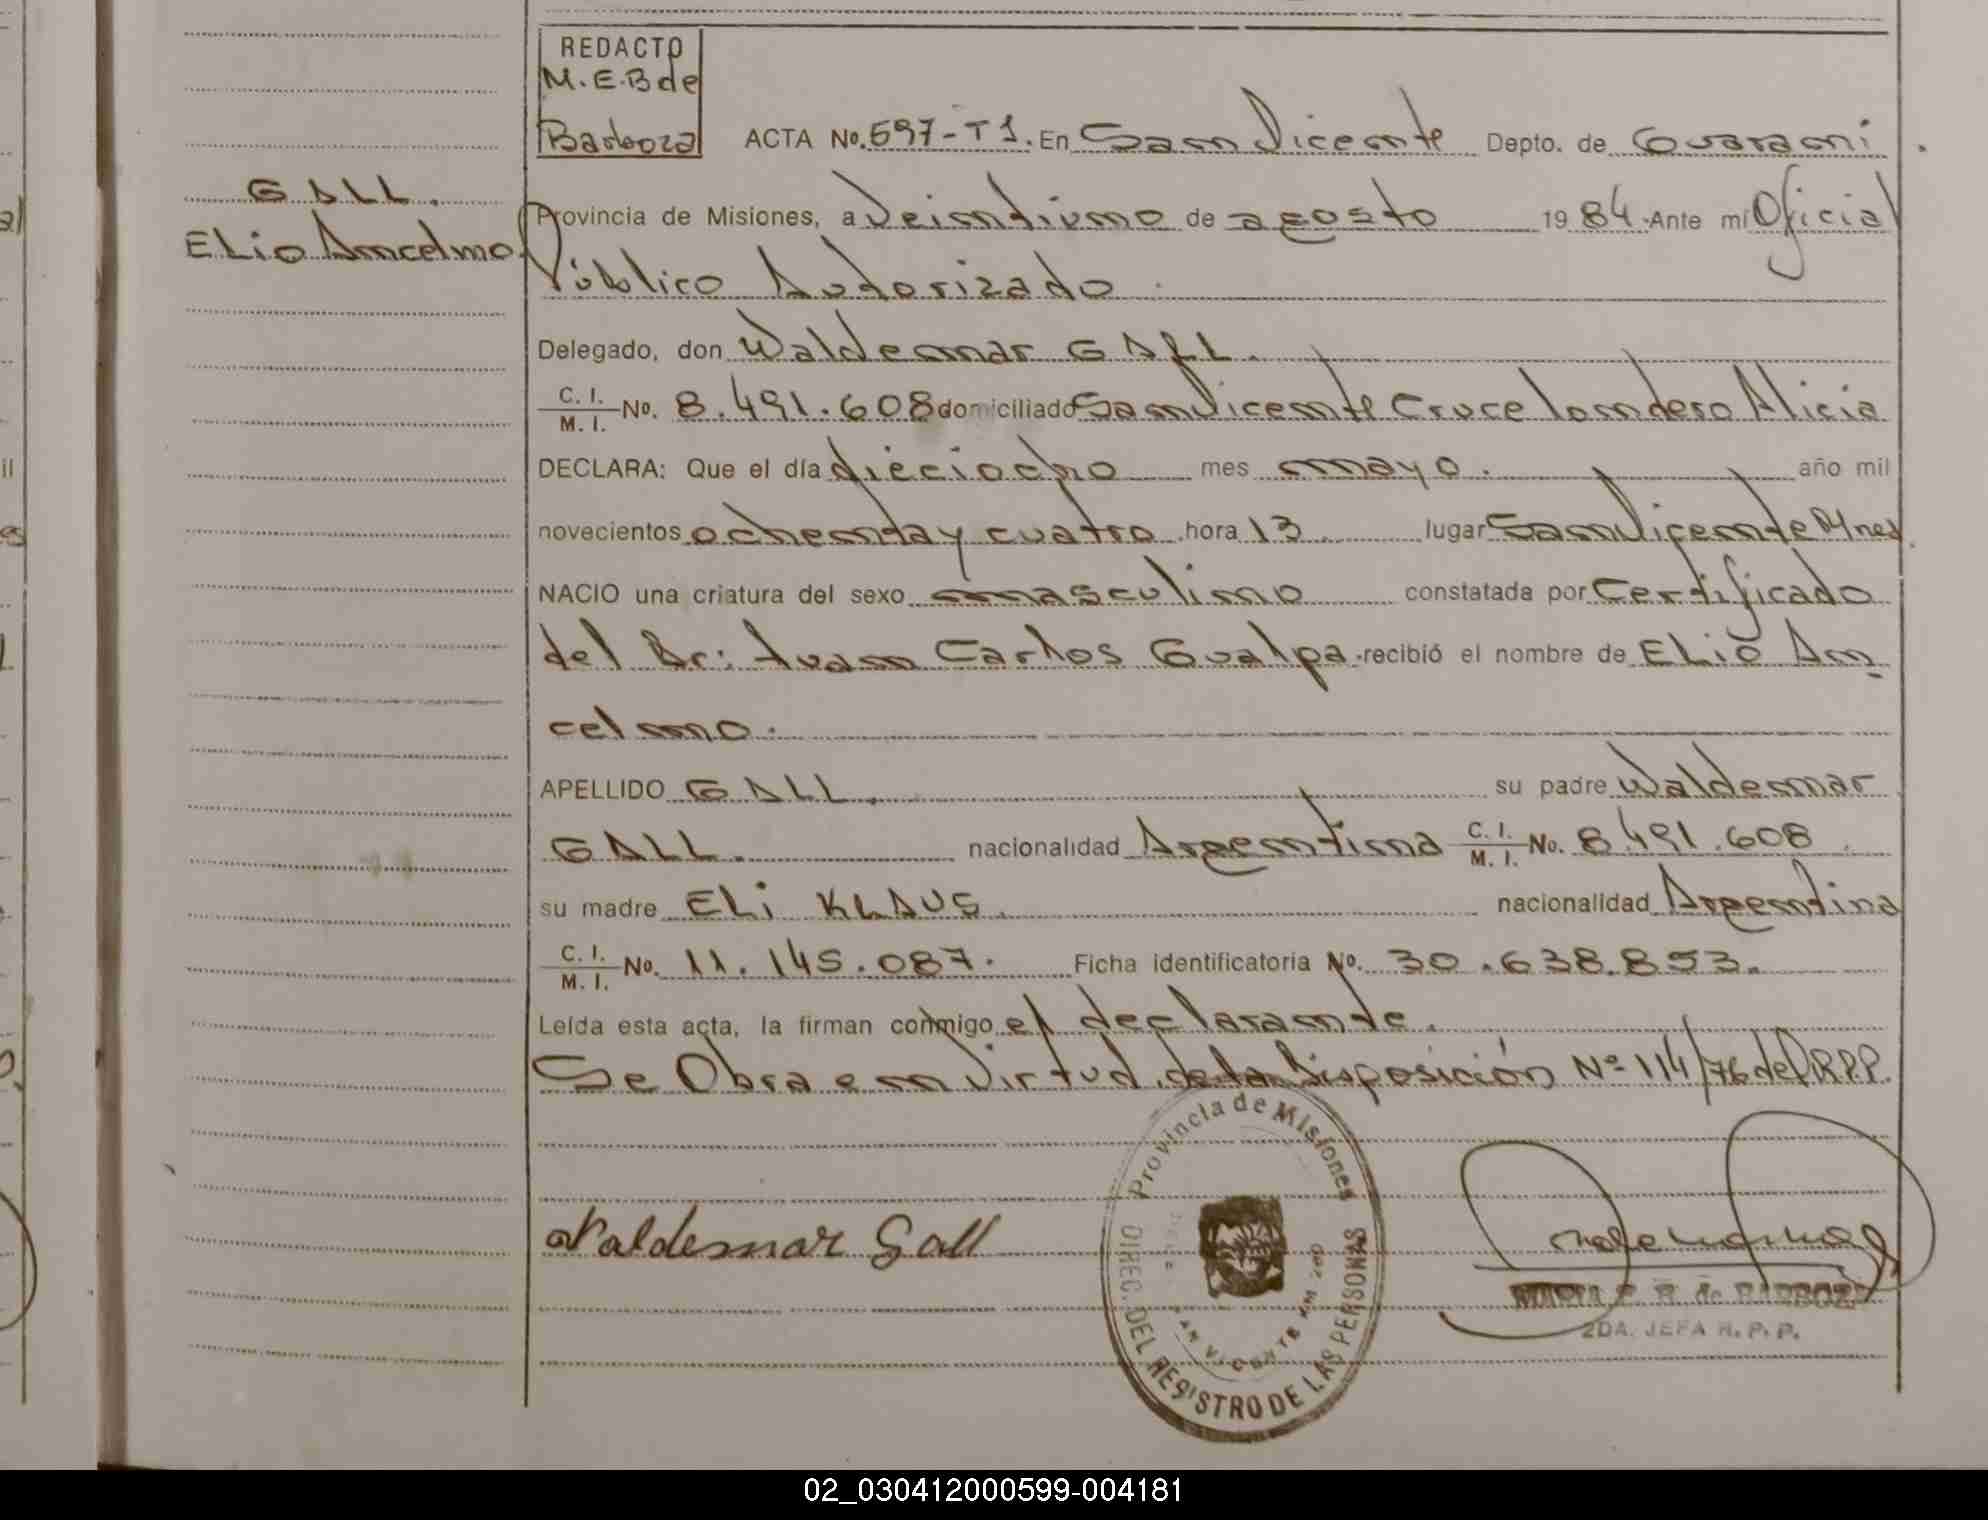 REDACTO
M.E.B de
Barboza
ACTA No. 597-T1. En San Vicente Depto. de Guarani
GALL.
Elio Ancelmo.
Provincia de Misiones, a Veintiuno de agosto 1984. Ante mi Oficial
Público Autorizado.
Delegado, don Waldemar GALL.
C. I.
M. I. No. 8.491.608 domiciliado San Vicente Cruce Londero Alicia
DECLARA: Que el día dieciocho mes mayo. año mil
novecientos ochenta y cuatro hora 13. lugar San Vicente Mnes.
NACIO una criatura del sexo masculino constatada por Certificado
del Dr: Juan Carlos Gualpa. recibió el nombre de ELIO An
celmo.
APELLIDO GALL. su padre Waldemar
GALL. nacionalidad Argentina C. I. M. I. No. 8.491.608
su madre ELi KLAUS. nacionalidad Argentina
C. I.
M. I. No. 11.145.087. Ficha identificatoria No. 30.638.853.
Leída esta acta, la firman conmigo el declarante.
Se Obra en Virtud de la Disposición Nº 114/76 del R.P.P.
Provincia de Misiones
DIREC. DEL REGISTRO DE LAS PERSONAS
SAN VICENTE KM 200
Waldemar Gall
MARIA E. B. de BARBOZA
2DA. JEFA R. P. P.
02_030412000599-004181